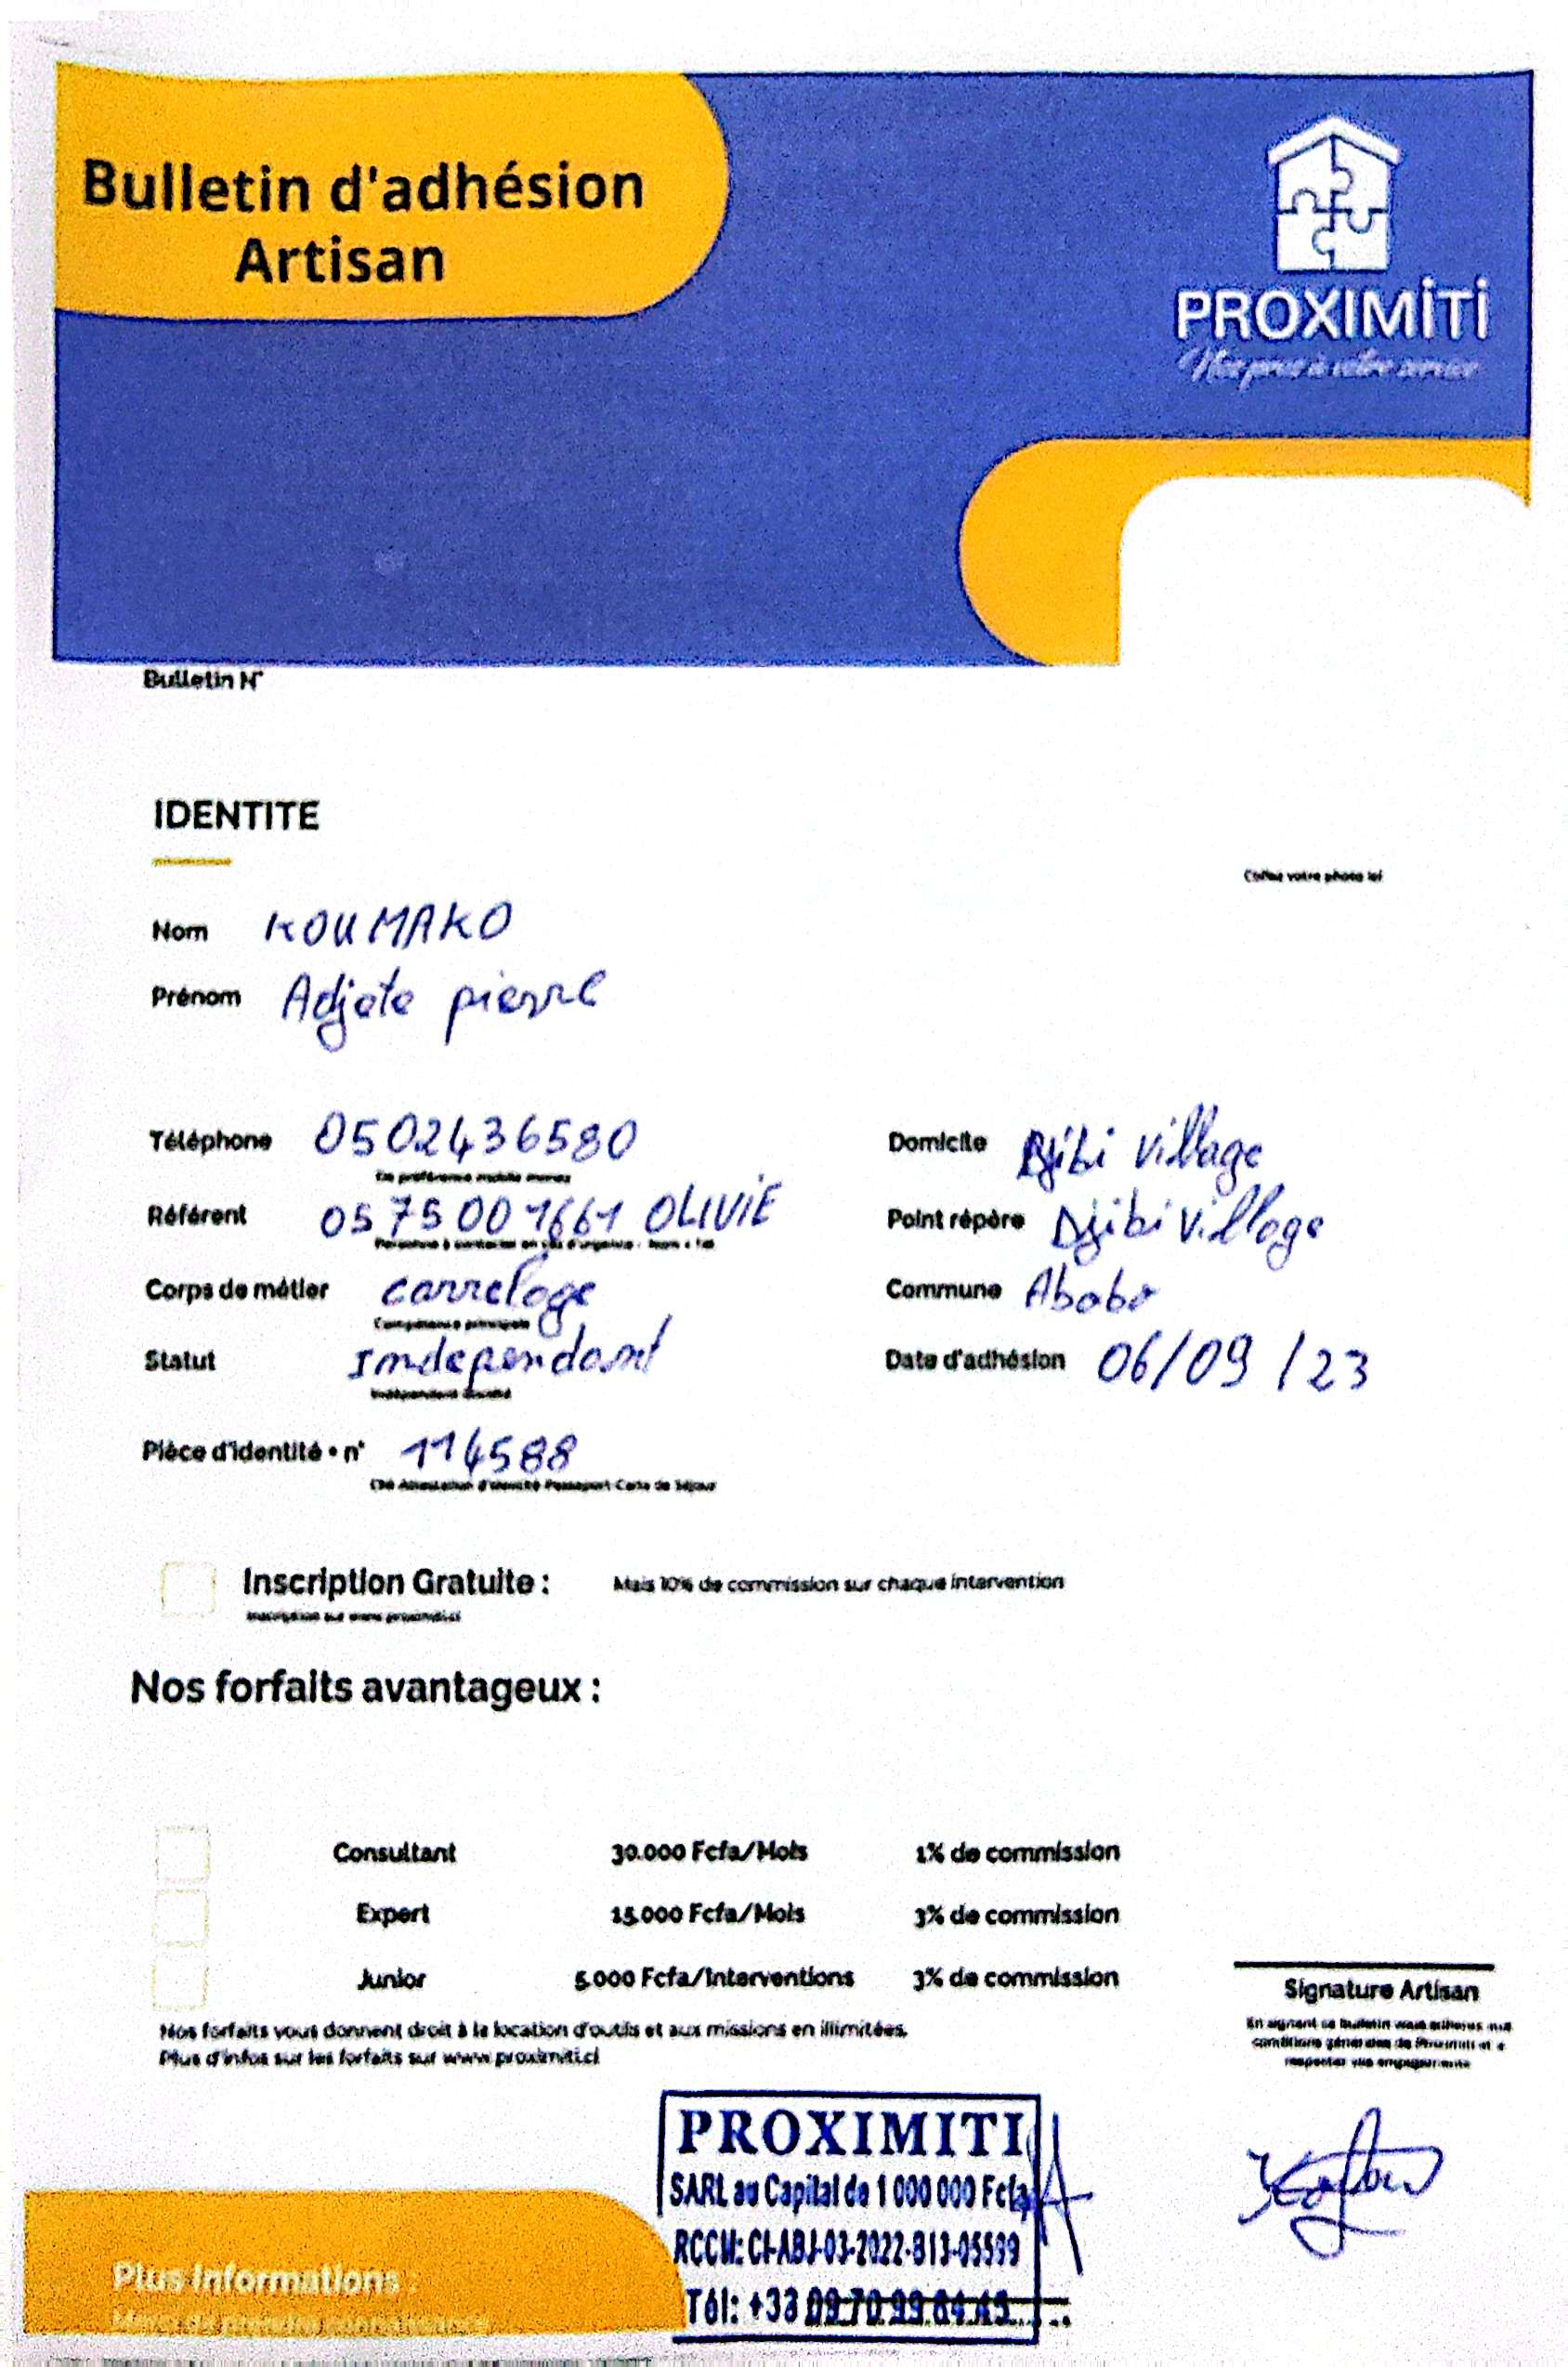 Bulletin d'adhésion
Artisan
PROXIMİTİ
Nos pros à votre service
Bulletin N°
IDENTITE
Collez votre photo ici
Nom KOUMAKO
Prénom Adjete pierre
Téléphone 0502436580 Domicile Djibi village
De préférence mobile money
Référent 0575001661 OLIVIE Point répère Djibi village
Personne à contacter en cas d'urgence - Nom + Tél
Corps de métier carrelage Commune Abobo
Compétence principale
Statut Independant Date d'adhésion 06/09/23
Pièce d'identité • n° 114588
CNI Attestation d'identité Passeport Carte de Séjour
Inscription Gratuite : Mais 10% de commission sur chaque intervention
Inscription sur www.proximiti.ci
Nos forfaits avantageux :
Consultant 30.000 Fcfa/Mois 1% de commission
Expert 15.000 Fcfa/Mois 3% de commission
Junior 5.000 Fcfa/Interventions 3% de commission
Nos forfaits vous donnent droit à la location d'outils et aux missions en illimitées.
Plus d'infos sur les forfaits sur www.proximiti.ci
Signature Artisan
En signant ce bulletin vous adhérez aux
conditions générales de Proximiti et à
respecter vos engagements
PROXIMITI
SARL au Capital de 1 000 000 Fcfa
RCCM: CI-ABJ-03-2022-B13-05599
Tél: +33
Plus Informations :